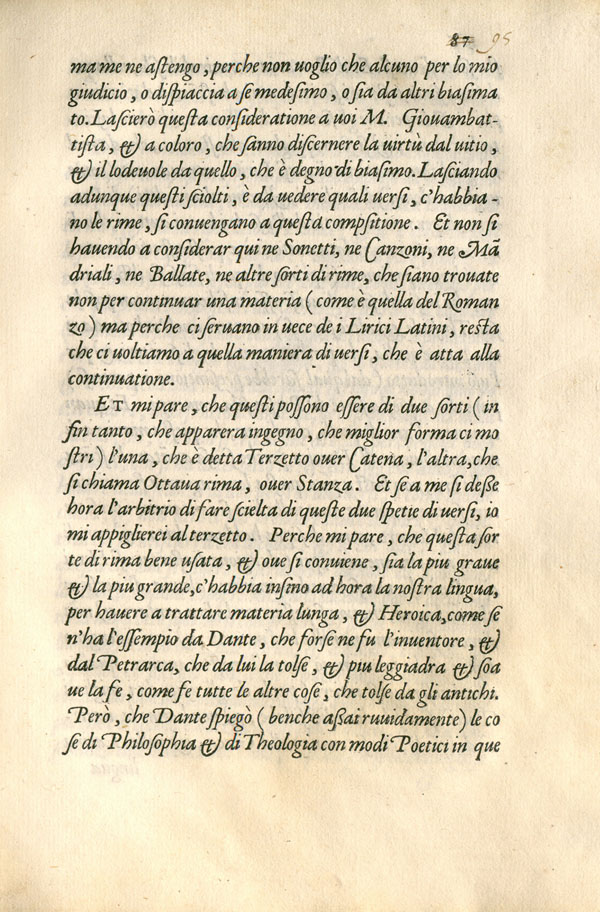 87 95
ma me ne astengo, perche non uoglio che alcuno per lo mio
giudicio, o dispiaccia a se medesimo, o sia da altri biasima
to. Lascierò questa consideratione a uoi M. Giouambat-
tista, & a coloro, che sanno discernere la uirtù dal uitio,
& il lodeuole da quello, che è degno di biasimo. Lasciando
adunque questi sciolti, è da uedere quali uersi, c'habbia-
no le rime, si conuengano a questa compsitione. Et non si
hauendo a considerar qui ne Sonetti, ne Canzoni, ne Mā
driali, ne Ballate, ne altre sorti di rime, che siano trouate
non per continuar una materia (come è quella del Roman
zo) ma perche ci seruano in uece de i Lirici Latini, resta
che ci uoltiamo a quella maniera di uersi, che è atta alla
continuatione.
ET mi pare, che questi possono essere di due sorti (in
fin tanto, che apparera ingegno, che miglior forma ci mo
stri) l'una, che è detta Terzetto ouer Catena, l'altra, che
si chiama Ottaua rima, ouer Stanza. Et se a me si desse
hora l'arbitrio di fare scielta di queste due spetie di uersi, io
mi appiglierei al terzetto. Perche mi pare, che questa sor
te di rima bene usata, & oue si conuiene, sia la piu graue
& la piu grande, c'habbia insino ad hora la nostra lingua,
per hauere a trattare materia lunga, & Heroica, come se
n'ha l'essempio da Dante, che forse ne fu l'inuentore, &
dal Petrarca, che da lui la tolse, & piu leggiadra & soa
ue la fe, come fe tutte le altre cose, che tolse da gli antichi.
Però, che Dante spiegò (benche assai ruuidamente) le co
se di Philosophia & di Theologia con modi Poetici in que